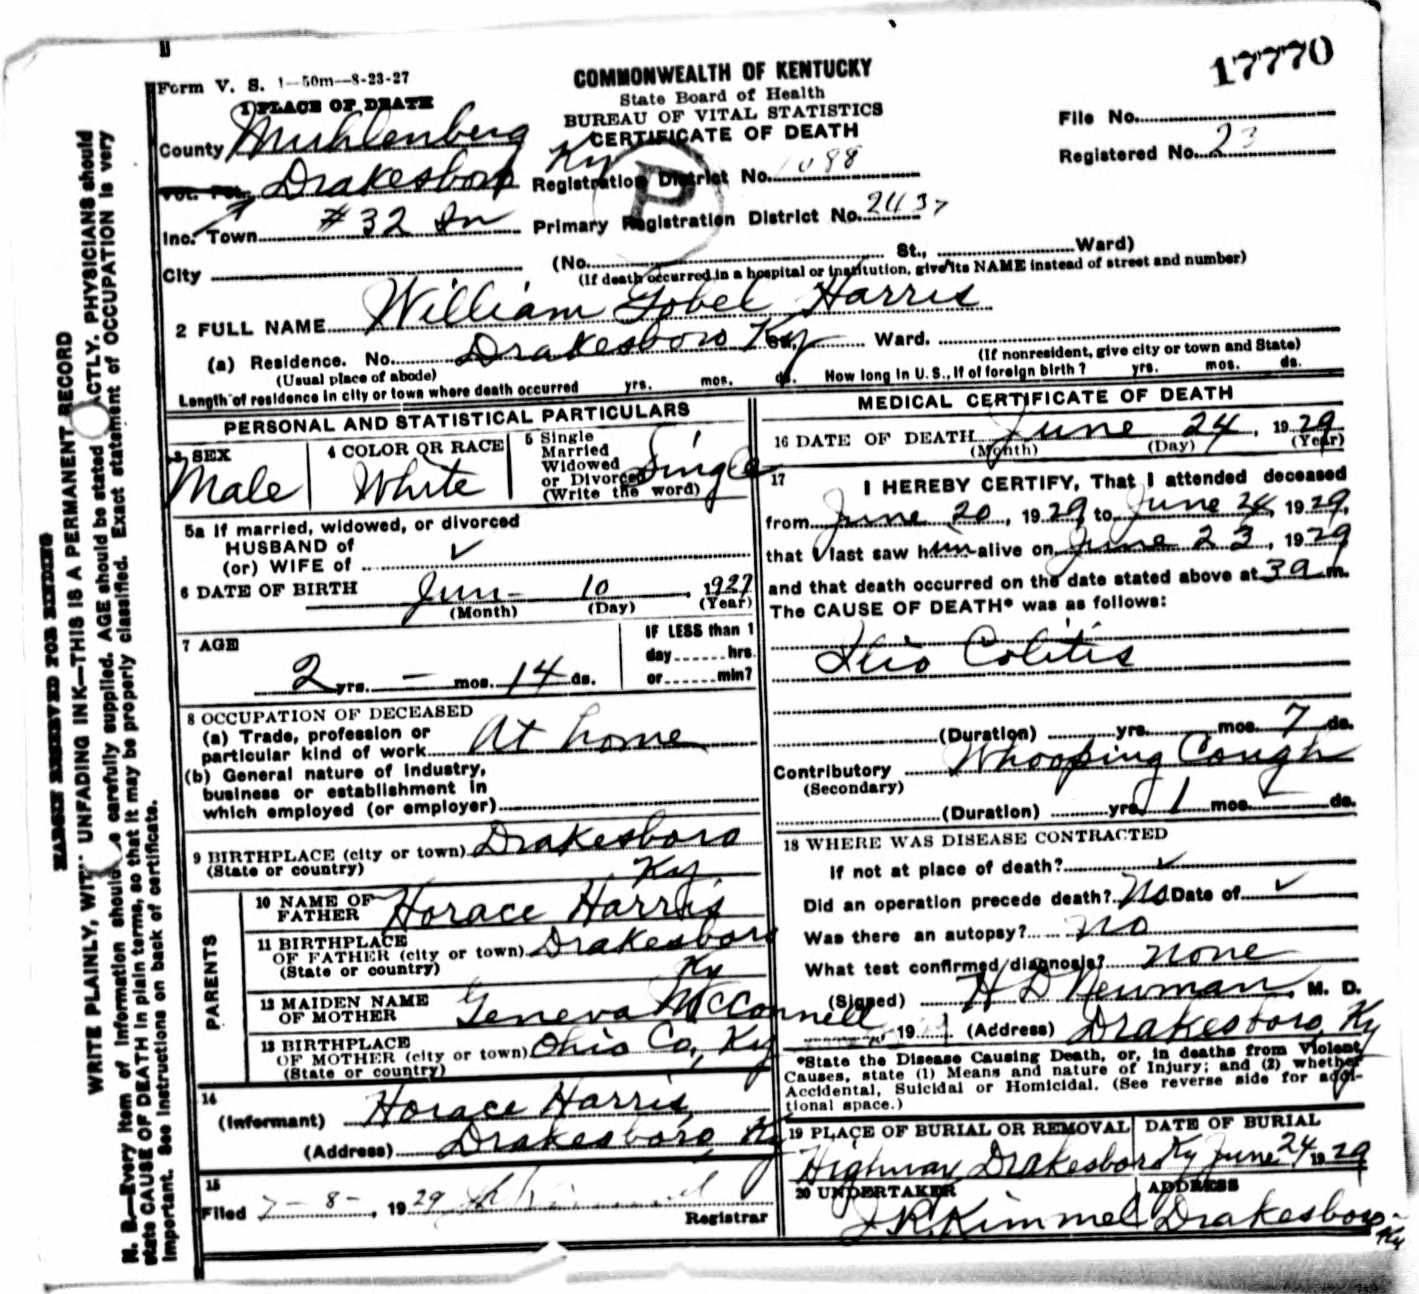 17770
Form V. S. 1—50m—8-23-27
COMMONWEALTH OF KENTUCKY
State Board of Health
BUREAU OF VITAL STATISTICS
CERTIFICATE OF DEATH
File No.
Registered No. 23
1 PLACE OF DEATH
County Muhlenberg Ky
Vot. Pct. Drakesboro Registration District No. 1088
Inc. Town #32 In Primary Registration District No. 2437
City (No. St., Ward)
(If death occurred in a hospital or institution, give its NAME instead of street and number)
2 FULL NAME William Gobel Harris
(a) Residence. No. Drakesboro Ky St., Ward.
(Usual place of abode) (If nonresident, give city or town and State)
Length of residence in city or town where death occurred yrs. mos. ds. How long in U. S., if of foreign birth? yrs. mos. ds.
PERSONAL AND STATISTICAL PARTICULARS
3 SEX Male
4 COLOR OR RACE White
5 Single Married Widowed or Divorced (Write the word) Single
5a If married, widowed, or divorced
HUSBAND of
(or) WIFE of ✓
6 DATE OF BIRTH Jun- 10, 1927
(Month) (Day) (Year)
7 AGE
2 yrs. — mos. 14 ds.
IF LESS than 1
day......hrs.
or......min?
8 OCCUPATION OF DECEASED
(a) Trade, profession or
particular kind of work At home
(b) General nature of industry,
business or establishment in
which employed (or employer)
9 BIRTHPLACE (city or town) Drakesboro
(State or country) Ky
PARENTS
10 NAME OF FATHER Horace Harris
11 BIRTHPLACE
OF FATHER (city or town) Drakesboro
(State or country) Ky
12 MAIDEN NAME
OF MOTHER Geneva McConnell
13 BIRTHPLACE
OF MOTHER (city or town) Ohio Co, Ky
(State or country)
14
(Informant) Horace Harris
(Address) Drakesboro, Ky
15
Filed 7-8-, 1929
Registrar
MEDICAL CERTIFICATE OF DEATH
16 DATE OF DEATH June 24, 1929
(Month) (Day) (Year)
17 I HEREBY CERTIFY, That I attended deceased
from June 20, 1929 to June 24, 1929,
that I last saw him alive on June 23, 1929
and that death occurred on the date stated above at 3 a m.
The CAUSE OF DEATH* was as follows:
Ilio Colitis
(Duration) yrs. mos. 7 ds.
Contributory Whooping Cough
(Secondary)
(Duration) yrs. 1 mos. ds.
18 WHERE WAS DISEASE CONTRACTED
If not at place of death? ✓
Did an operation precede death? No Date of ✓
Was there an autopsy? no
What test confirmed diagnosis? none
(Signed) H D Newman, M. D.
, 19 (Address) Drakesboro, Ky
*State the Disease Causing Death, or, in deaths from Violent
Causes, state (1) Means and nature of Injury; and (2) whether
Accidental, Suicidal or Homicidal. (See reverse side for addi-
tional space.)
19 PLACE OF BURIAL OR REMOVAL DATE OF BURIAL
Highway Drakesboro Ky June 24 1929
20 UNDERTAKER ADDRESS
J R Kimmel Drakesboro Ky
P
MARGIN RESERVED FOR BINDING
WRITE PLAINLY, WITH UNFADING INK—THIS IS A PERMANENT RECORD
N. B.—Every item of information should be carefully supplied. AGE should be stated EXACTLY. PHYSICIANS should
state CAUSE OF DEATH in plain terms, so that it may be properly classified. Exact statement of OCCUPATION is very
important. See instructions on back of certificate.